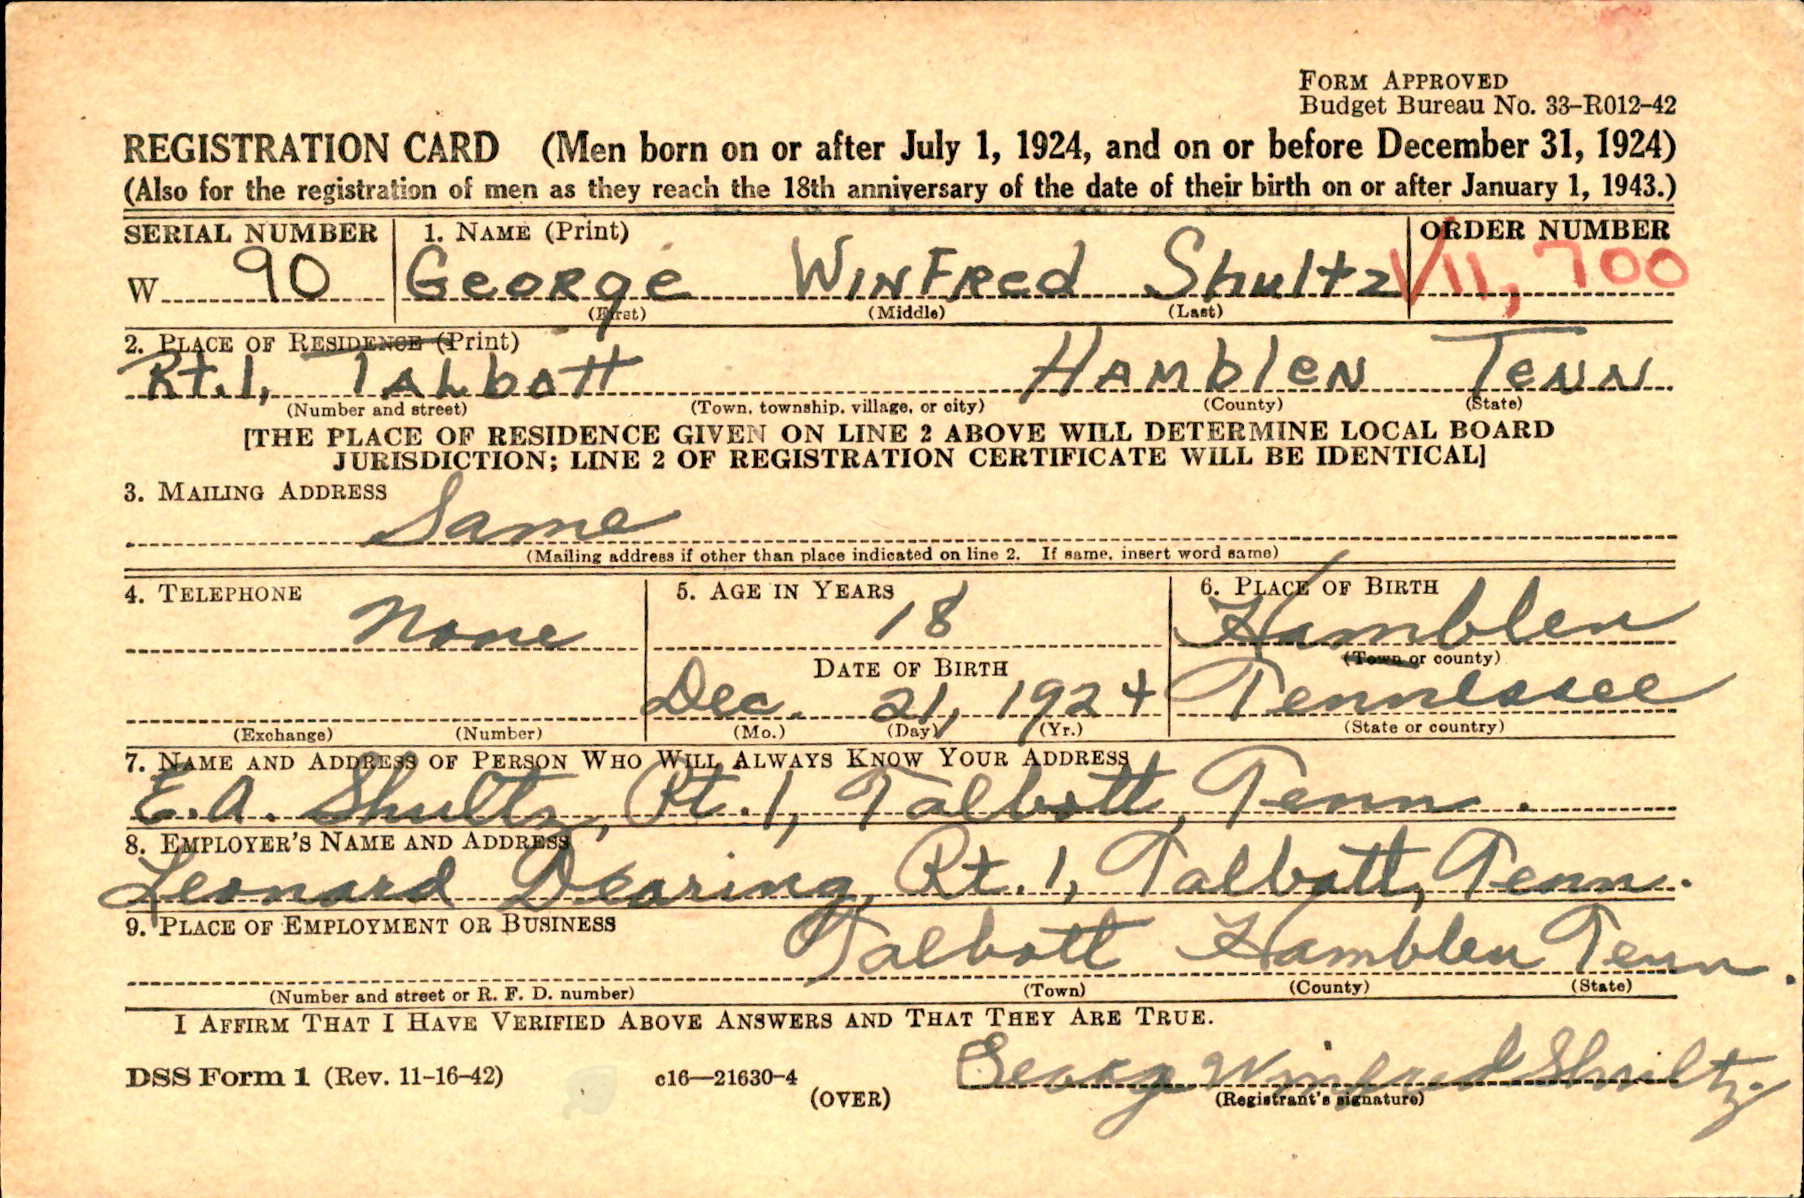 FORM APPROVED
Budget Bureau No. 33–R012–42
REGISTRATION CARD (Men born on or after July 1, 1924, and on or before December 31, 1924)
(Also for the registration of men as they reach the 18th anniversary of the date of their birth on or after January 1, 1943.)
SERIAL NUMBER 1. NAME (Print) ORDER NUMBER
W 90 George Winfred Shultz 11,700
(First) (Middle) (Last)
2. PLACE OF RESIDENCE (Print)
Rt. 1, Talbott Hamblen Tenn
(Number and street) (Town, township, village, or city) (County) (State)
[THE PLACE OF RESIDENCE GIVEN ON LINE 2 ABOVE WILL DETERMINE LOCAL BOARD
JURISDICTION; LINE 2 OF REGISTRATION CERTIFICATE WILL BE IDENTICAL]
3. MAILING ADDRESS
Same
(Mailing address if other than place indicated on line 2. If same, insert word same)
4. TELEPHONE 5. AGE IN YEARS 6. PLACE OF BIRTH
None 18 Hamblen
(Town or county)
DATE OF BIRTH
Dec. 21, 1924 Tennessee
(Exchange) (Number) (Mo.) (Day) (Yr.) (State or country)
7. NAME AND ADDRESS OF PERSON WHO WILL ALWAYS KNOW YOUR ADDRESS
E. A. Shultz, Rt. 1, Talbott, Tenn.
8. EMPLOYER'S NAME AND ADDRESS
Leonard Dearing, Rt. 1, Talbott, Tenn.
9. PLACE OF EMPLOYMENT OR BUSINESS
Talbott Hamblen Tenn.
(Number and street or R. F. D. number) (Town) (County) (State)
I AFFIRM THAT I HAVE VERIFIED ABOVE ANSWERS AND THAT THEY ARE TRUE.
DSS Form 1 (Rev. 11–16–42) c16—21630–4 (OVER)
George Winfred Shultz.
(Registrant's signature)